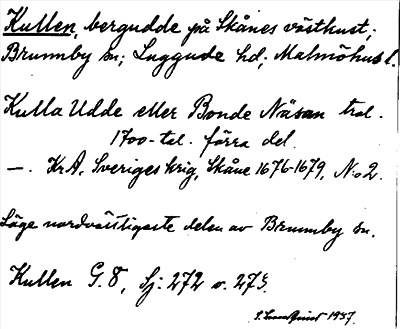 Kullen, bergudde på Skånes västkust;
Brunnby sn; Luggude hd; Malmöhus l.
Kulla Udde eller Bonde Näsan trol.
1700-tal. förra del.
—. KrA, Sveriges krig, Skåne 1676-1679, N:o 2.
Läge nordvästligaste delen av Brunnby sn.
Kullen G. 8, Sj: 272 o. 275.
1937.